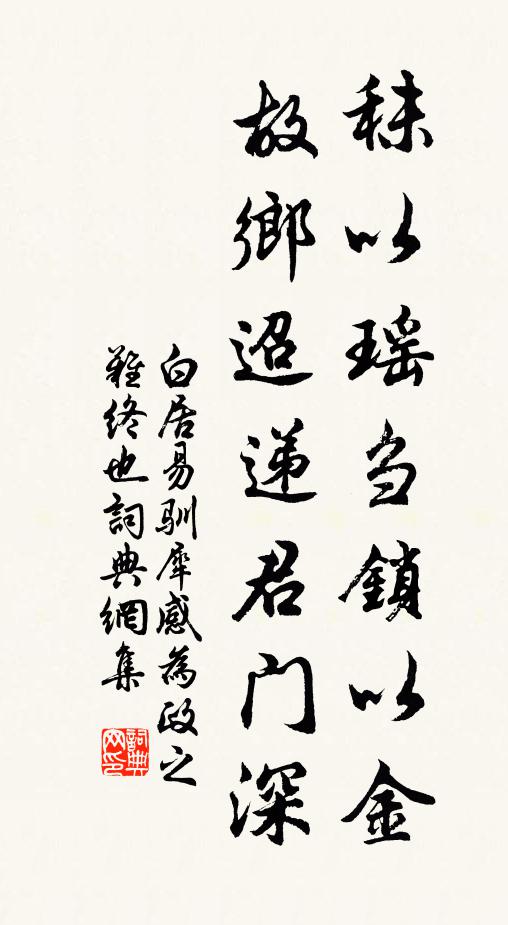 秣以瑶芻鎖以金
故鄉迢遞君門深
白居易馴犀感為政之
難終也詞典網集
詞典
网印